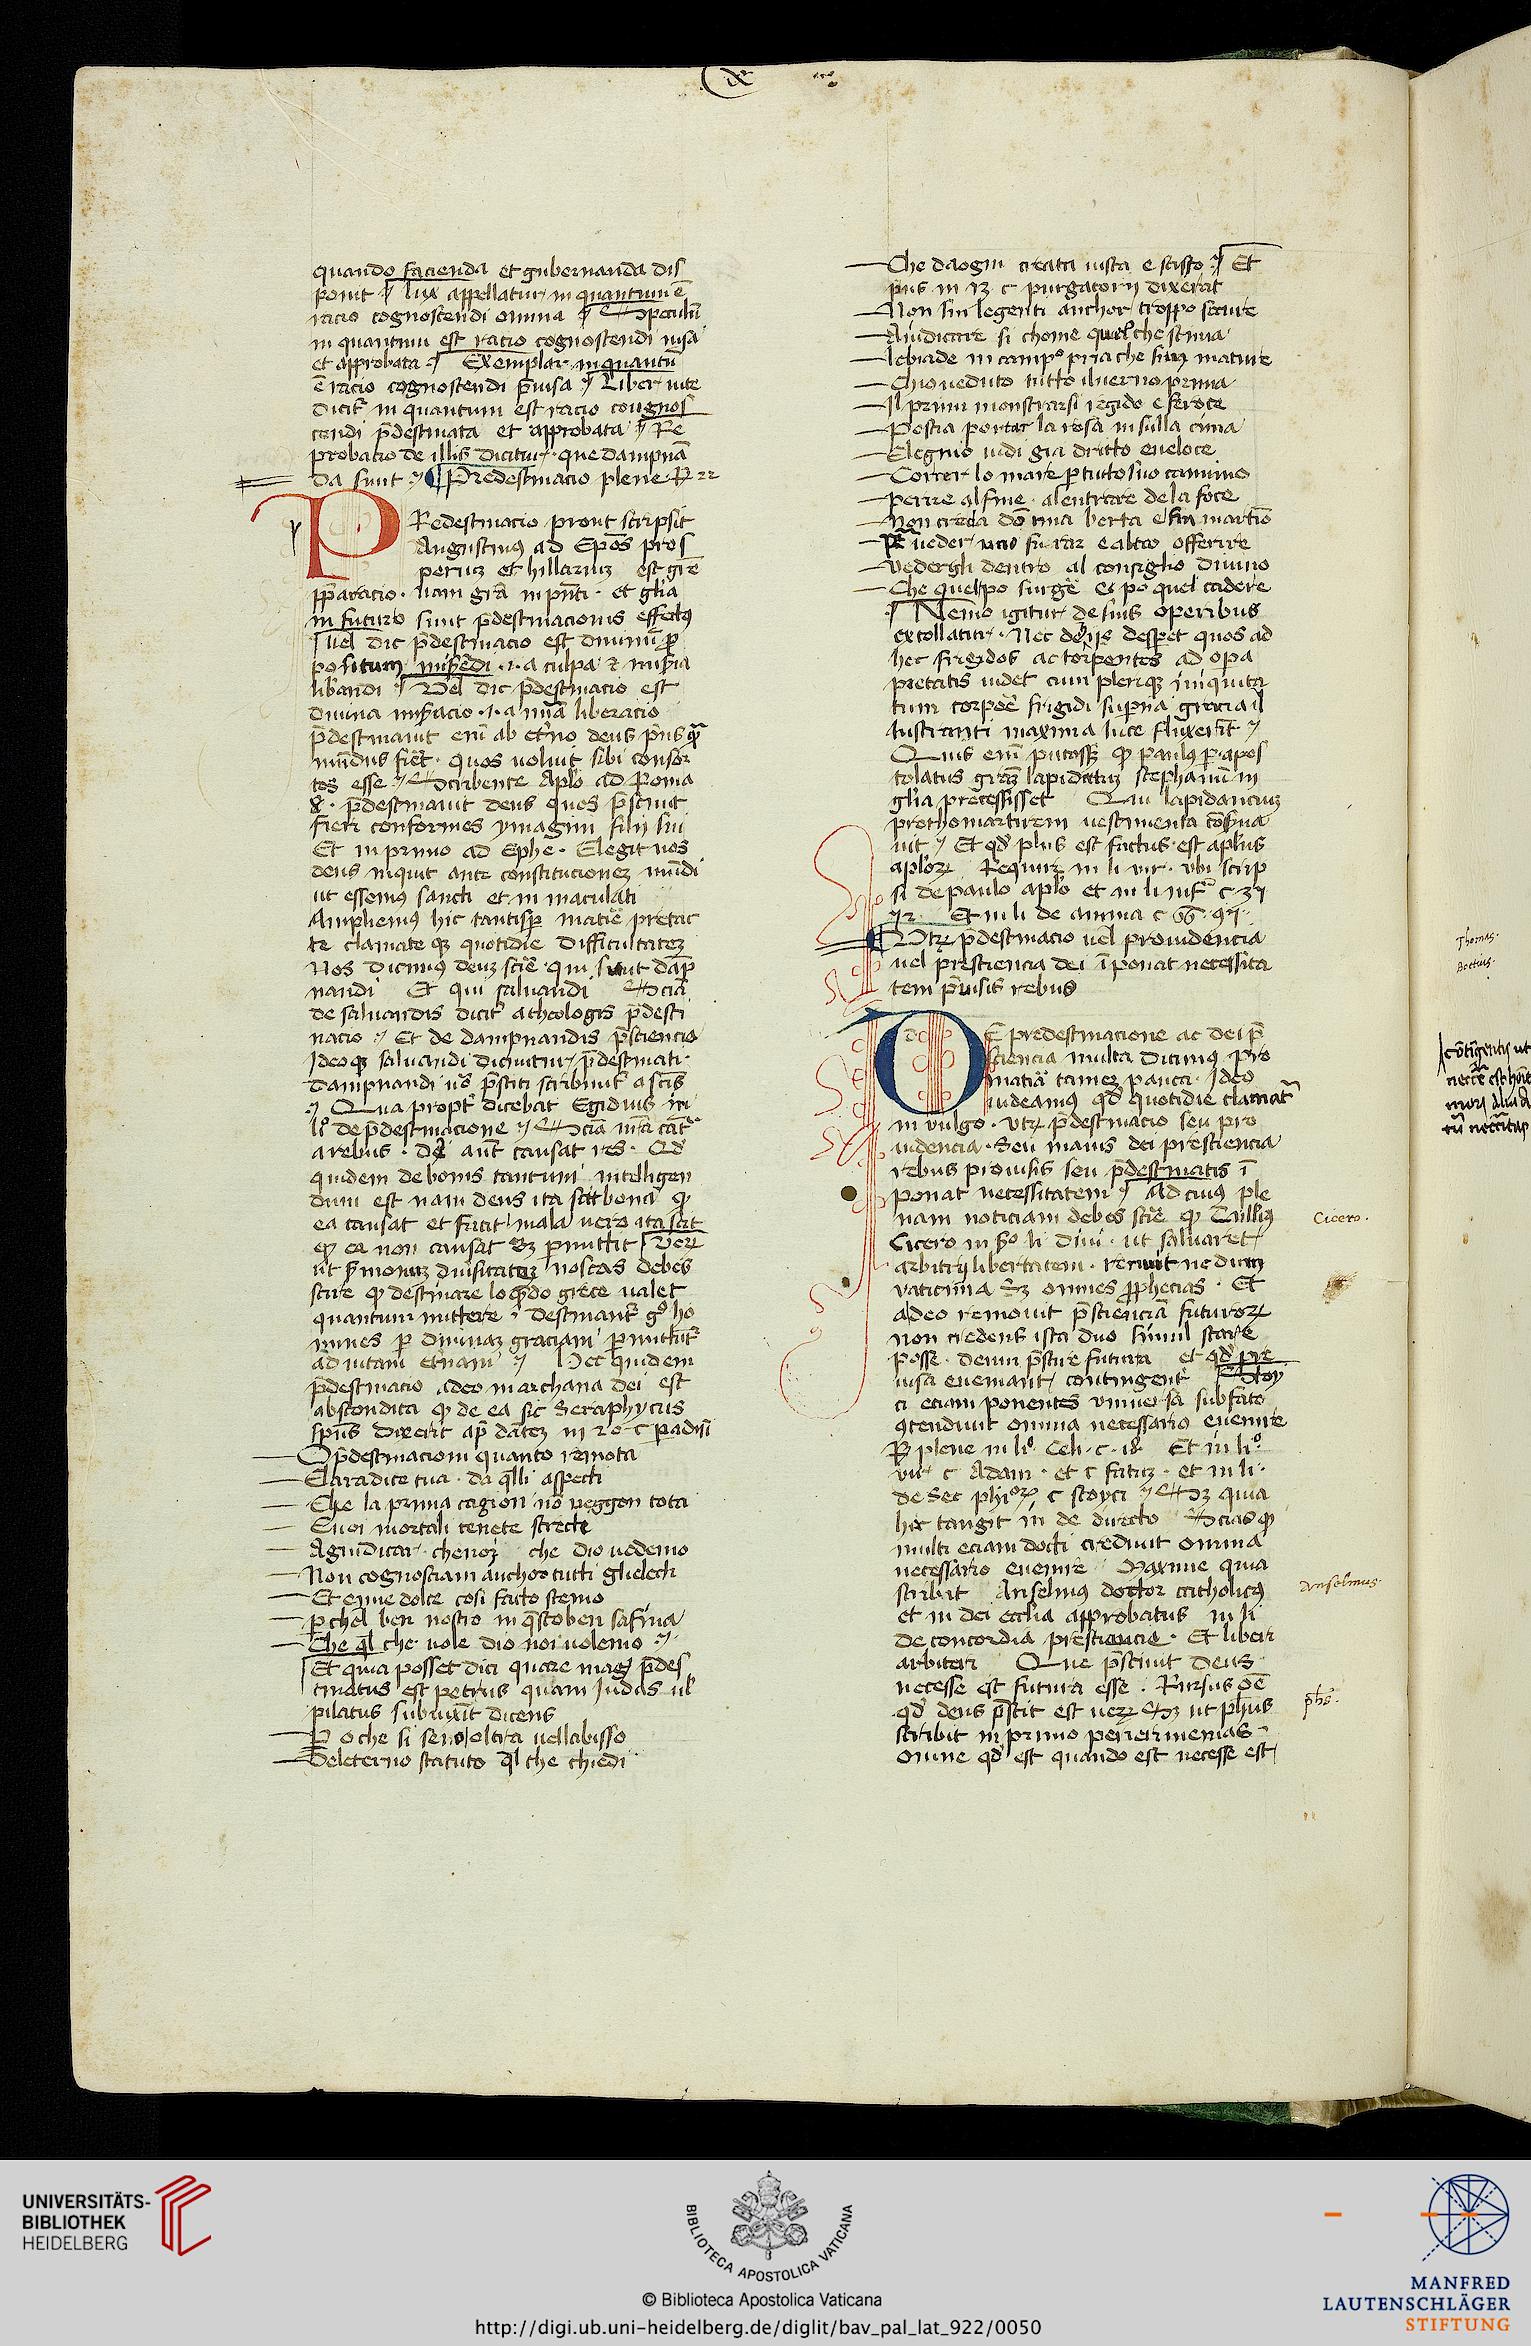 quando facienda et gubernanda dis
ponit lux appellatur in quantum ē
racio cognoscendi omnia Speculū
in quantum est racio cognoscendi uisa
et approbata Exemplar in quantū
ē racio cognoscendi p̄uisa Liber uite
dicit᷑ in quantum est racio cougnos
cendi p̄destinata et approbata Re
probacio de illis dicitur que dampnā
da sunt Predestinacio plene R 22
PRedestinacio prout scripsit
Augustinus ad Epōs pros
perum et hillarium est grē
pparacio uam grā in pn̄ti et gl̄ia
in futuro sunt p̄destinacionis effectus
uel dic p̄destinacio est diuinū pro
positum mis̄ēdi .i. a culpa et mis̄ia
lib̄andi Vel dic p̄destinacio est
diuina mis̄acio .i. a mīa liberacio
p̄destinauit enī ab et̄no deus p̄us qᷓ
mundus fiēt quos uoluit sibi consor
tes esse Scribente Ap̄lo ad Roma
8. p̄destinauit deus quos p̄sciuit
fieri conformes ymagini filij sui
Et in primo ad Ephe. Elegit nos
deus inquit ante constitucionem mūdi
ut essemus sancti et in maculati
Amphemus hic tantisper matiē pretac
te clamate que quotidie difficultatem
Nos dicimus deum sciē qui sunt dāp
nandi Et qui saluandi Sciā
de saluandis dicit᷑ a theologis p̄desti
nacio Et de dampnandis p̄sciencia
Ideoque saluandi dicuntur p̄destinati
dampnandi uo p̄sciti scribunt᷑ a sciis
Qua propt᷑ dicebat Egidius in
li° de p̄destinacione Sciā nr̄a cāt᷑
a rebus. Dei aut̄ causat res. Qd
quidem de bonis tantum intelligen
dum est nam deus ita scit bona qꝫ
ea causat et facit mala uero ita scit
qꝫ ea non causat sꝫ p̄mittit Verū
ut s̄monum diuisitatem noscas debes
scire qꝫ destinare loquēdo grece ualet
quantum mittere Destinant᷑ g° ho
mines per diuinam graciam p̄mittūt᷑
ad uitam et̄nam Hec quidem
p̄destinacio adeo in archana dei est
abscondita qꝫ de ea sic Seraphycus
sp̄us dixerit ap̄ dātem in 20 c padisi
O p̄destinacioni quanto remota
E la radice tua da q̄lli aspecti
Che la prima cagion nō ueggon tota
E uoi mortali tenete strecte
A giudicar che noi che dio uedemo
Non cognosciam anchor tutti gli electi
Et enne dolce cosi facto scemo
p̄chel ben nostro in q̄sto ben safina
Che q̄l che uole dio noi uolemo
Et quia posset dici quare magꝫ p̄des
tinatus est petrus quam Iudas uł
pilatus subiunxit dicens
Po che si sen oltra nellabisso
Deleterno statuto q̄l che chiedi
Che daogni creata uista e scisso Et
p̄us in 13 c purgatorij dixerat
Non sin le genti anchor troppo secure
A iudicare si chome quel che stima
le biade in campo pria che sian mature
Chio ueduto tutto il uerno prima
Il prun monstrarsi regido e feroce
Poscia portar la rosa in sulla cima
E legnio uidi gia dritto e ueloce
Correr lo mare p tutto suo camino
perire al fine al entrare de la foce
Non creda dōna berta e san martīo
per ueder uno furar e altro offerire
Vedergli dentro al consiglio diuino
Che quel po surgē e po quel cadere
Nemo igitur de suis operibus
extollatur. Nec de ijs desp̄et quos ad
hec frigidos ac torpentes ad opa
pietatis uidet cum plerique iniquita
tum torpoē frigidi sup̄na gracia il
lustranti maxima luce fluxerīt
Quis enī putasset qꝫ paulus p̄ apos
tolatus grām lapidatum stephanū in
gl̄ia precessisset Qui lapidancium
prothomartirem uestimenta cōs̄ua
uit Et qd plus est factus est ap̄lus
ap̄lorum Require in li uir. ubi scrip
si de paulo ap̄lo et in li inf̄ c 31
Et in li de anima c 66
Vtrum p̄destinacio uel prouidencia
uel presciencia dei īponat necessita
tem p̄uisis rebus
DE predestinacione ac dei p̄
sciencia multa dicimus pro
matiā tamen pauca. Ideo
uideamus qd quotidie clamat᷑
in uulgo. vtrum p̄destinacio seu pro
uidencia. Seu mauis dei presciencia
rebus prouisis seu p̄destinatis ī
ponat necessitatem Ad cuius ple
nam noticiam debes sciē qꝫ Tullius
Cicero in s° li diui. ut saluaret
arbitrij libertatem. remuit nedum
vaticinia sꝫ omnes pphecias. Et
adeo remouit p̄scienciā futurorum
non credens ista duo simul stare
posse. deum p̄scire futura et qd pre
uisa eueniant contingent᷑ Stoy
ci eciam ponentes vniuersa sub fato
ꝯtendunt omnia necessario euenire
R plene in li°. Celi. c. 18 Et in li°
vir c Adam. et c fatum. et in li
de Sec phi°rum, c stoyci Sꝫ quia
hic tangit in de directo Scias qꝫ
multi eciam docti credunt omnia
necessario euenire Maxime quia
scribit Anselmus doctor catholicus
et in dei eccl̄ia approbatus in li
de concordia presciencie. Et liberi
arbiteri Que p̄sciuit deus
necesse est futura esse. Rursus oē
qd deus p̄scit est uerum Sꝫ ut ph̄us
scribit in primo periermenias
Omne qd est quando est necesse est
Cicero.
Anselmus.
ph̄s.
Thomas.
Boetius.
UNIVERSITÄTS-
BIBLIOTHEK
HEIDELBERG
BIBLIOTECA APOSTOLICA VATICANA
© Biblioteca Apostolica Vaticana
http://digi.ub.uni-heidelberg.de/diglit/bav_pal_lat_922/0050
MANFRED
LAUTENSCHLÄGER
STIFTUNG